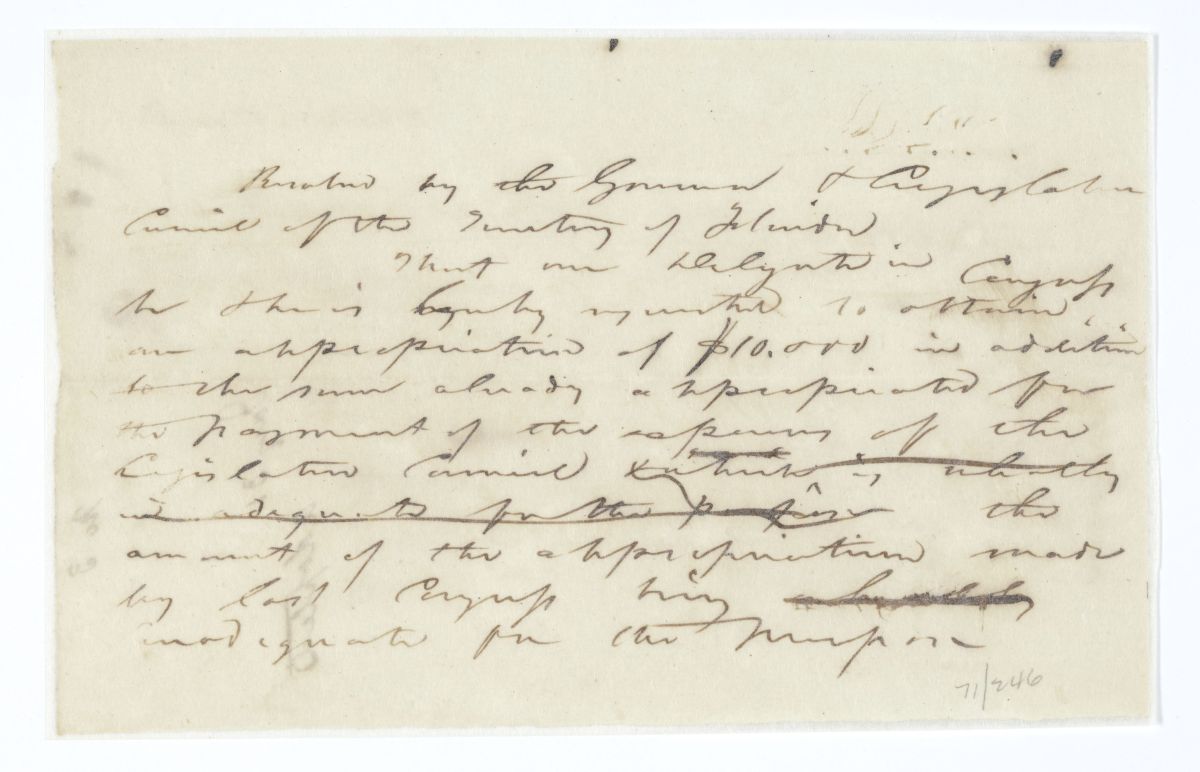 Resolved by the Governor & Legislative
Council of the Territory of Florida
That our Delegate in Congress
be & he is hereby requested to obtain
an appropriation of $10.000 in addition
to the sum already appropriated for
the payment of the expenses of the
Legislative Council & which is wholly
inadequate for the purpose the
amount of the appropriation made
by last Congress being
inadequate for the purpose
71/246